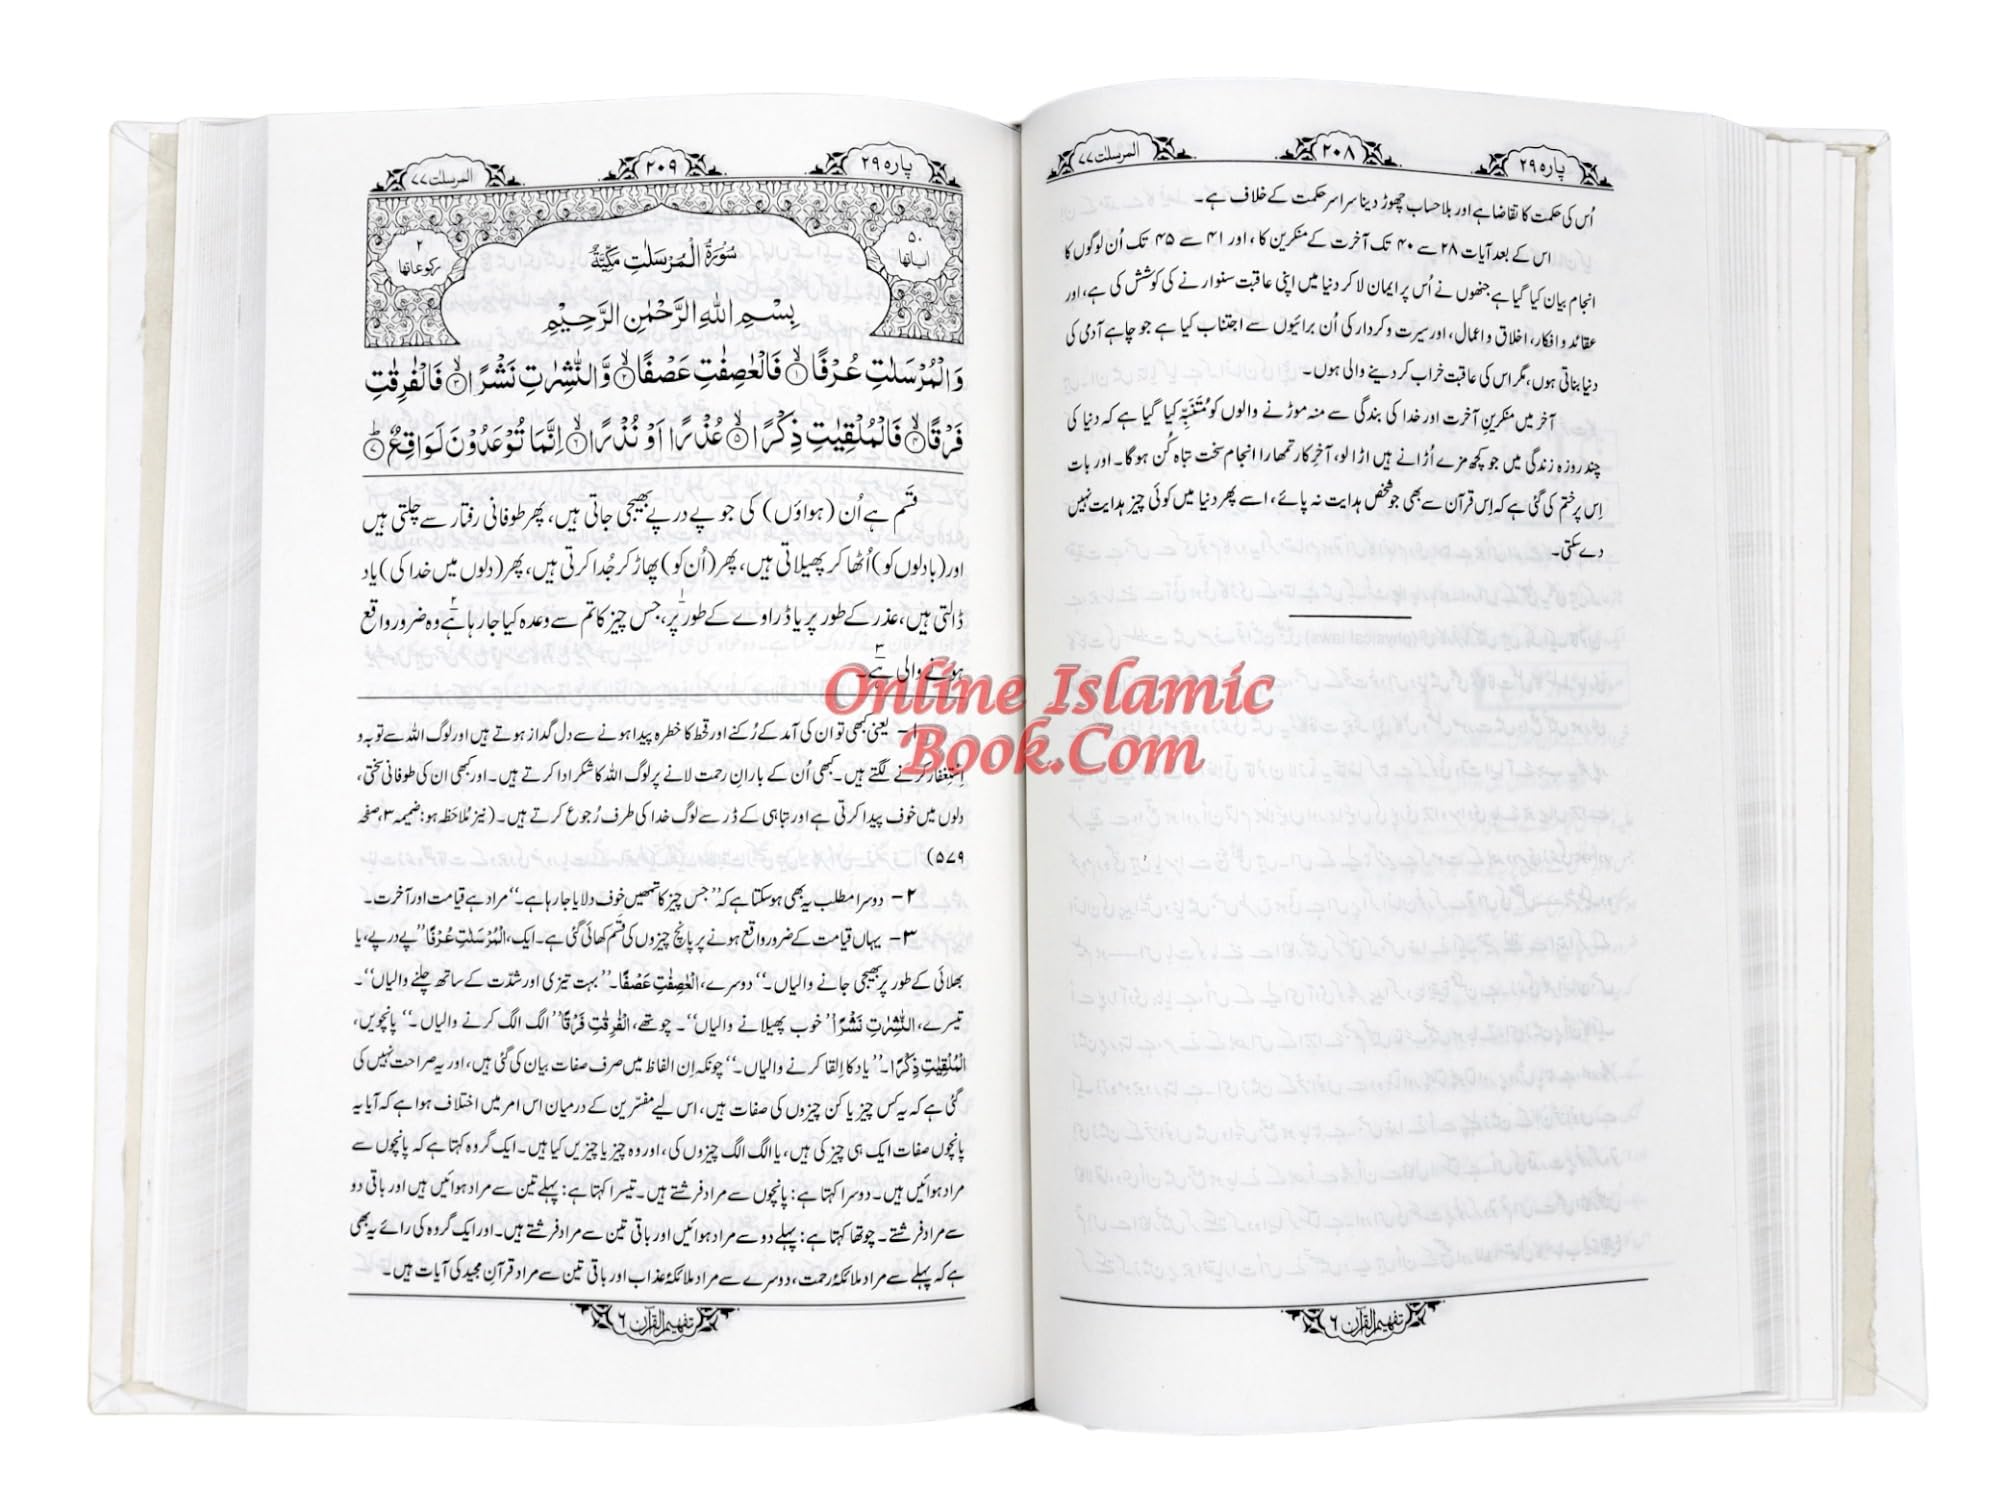 پارہ ۲۹
۲۰۸
المرسلت ۷۷
اُس کی حکمت کا تقاضا ہے اور بلا حساب چھوڑ دینا سراسر حکمت کے خلاف ہے۔
اس کے بعد آیات ۲۸ سے ۴۰ تک آخرت کے منکرین کا، اور ۴۱ سے ۴۵ تک اُن لوگوں کا
انجام بیان کیا گیا ہے جنھوں نے اُس پر ایمان لا کر دنیا میں اپنی عاقبت سنوارنے کی کوشش کی ہے، اور
عقائد و افکار، اخلاق و اعمال، اور سیرت و کردار کی اُن برائیوں سے اجتناب کیا ہے جو چاہے آدمی کی
دنیا بناتی ہوں، مگر اس کی عاقبت خراب کر دینے والی ہوں۔
آخر میں منکرینِ آخرت اور خدا کی بندگی سے منہ موڑنے والوں کو مُتَنَبِّہ کیا گیا ہے کہ دنیا کی
چند روزہ زندگی میں جو کچھ مزے اُڑانے ہیں اڑا لو، آخرِ کار تمھارا انجام سخت تباہ کُن ہوگا۔ اور بات
اِس پر ختم کی گئی ہے کہ اِس قرآن سے بھی جو شخص ہدایت نہ پائے، اسے پھر دنیا میں کوئی چیز ہدایت نہیں
دے سکتی۔
تفہیم القرآن ۶
پارہ ۲۹
۲۰۹
المرسلت ۷۷
۵۰
اٰیاتها
سُوْرَةُ الْمُرْسَلٰتِ مَكِّيَّةٌ
۲
رکوعاتها
بِسْمِ اللّٰهِ الرَّحْمٰنِ الرَّحِيْمِ
وَالْمُرْسَلٰتِ عُرْفًا ۙ۱ فَالْعٰصِفٰتِ عَصْفًا ۙ۲ وَّالنّٰشِرٰتِ نَشْرًا ۙ۳ فَالْفٰرِقٰتِ
فَرْقًا ۙ۴ فَالْمُلْقِيٰتِ ذِكْرًا ۙ۵ عُذْرًا اَوْ نُذْرًا ۙ۶ اِنَّمَا تُوْعَدُوْنَ لَوَاقِعٌ ؕ۷
قَسَم ہے اُن (ہواؤں) کی جو پے در پے بھیجی جاتی ہیں، پھر طوفانی رفتار سے چلتی ہیں
اور (بادلوں کو) اُٹھا کر پھیلاتی ہیں، پھر (اُن کو) پھاڑ کر جُدا کرتی ہیں، پھر (دلوں میں خدا کی) یاد
ڈالتی ہیں، عذر کے طور پر یا ڈراوے کے طور پر،۱ جس چیز کا تم سے وعدہ کیا جا رہا ہے۲ وہ ضرور واقع
ہونے والی ہے۳۔
۱- یعنی کبھی تو ان کی آمد کے رُکنے اور قحط کا خطرہ پیدا ہونے سے دل گداز ہوتے ہیں اور لوگ اللہ سے توبہ و
اِستِغفار کرنے لگتے ہیں۔ کبھی اُن کے بارانِ رحمت لانے پر لوگ اللہ کا شکر ادا کرتے ہیں۔ اور کبھی ان کی طوفانی سختی،
دلوں میں خوف پیدا کرتی ہے اور تباہی کے ڈر سے لوگ خدا کی طرف رُجوع کرتے ہیں۔ (نیز مُلاحَظہ ہو: ضمیمہ ۳، صفحہ
۵۷۹)
۲- دوسرا مطلب یہ بھی ہو سکتا ہے کہ “جس چیز کا تمھیں خوف دلایا جا رہا ہے۔” مراد ہے قیامت اور آخرت۔
۳- یہاں قیامت کے ضرور واقع ہونے پر پانچ چیزوں کی قَسم کھائی گئی ہے۔ ایک، الْمُرْسَلٰتِ عُرْفًا “پے در پے، یا
بھلائی کے طور پر بھیجی جانے والیاں۔” دوسرے، الْعٰصِفٰتِ عَصْفًا۔ “بہت تیزی اور شدّت کے ساتھ چلنے والیاں”۔
تیسرے، النّٰشِرٰتِ نَشْرًا “خوب پھیلانے والیاں”۔ چوتھے، الْفٰرِقٰتِ فَرْقًا “الگ الگ کرنے والیاں۔” پانچویں،
الْمُلْقِيٰتِ ذِكْرًا۔ “یاد کا اِلقا کرنے والیاں۔” چونکہ اِن الفاظ میں صرف صفات بیان کی گئی ہیں، اور یہ صراحت نہیں کی
گئی ہے کہ یہ کس چیز یا کن چیزوں کی صفات ہیں، اس لیے مفسّرین کے درمیان اس امر میں اختلاف ہوا ہے کہ آیا یہ
پانچوں صفات ایک ہی چیز کی ہیں، یا الگ الگ چیزوں کی، اور وہ چیز یا چیزیں کیا ہیں۔ ایک گروہ کہتا ہے کہ پانچوں سے
مراد ہوائیں ہیں۔ دوسرا کہتا ہے: پانچوں سے مراد فرشتے ہیں۔ تیسرا کہتا ہے: پہلے تین سے مراد ہوائیں ہیں اور باقی دو
سے مراد فرشتے۔ چوتھا کہتا ہے: پہلے دو سے مراد ہوائیں اور باقی تین سے مراد فرشتے ہیں۔ اور ایک گروہ کی رائے یہ بھی
ہے کہ پہلے سے مراد ملائکۂ رحمت، دوسرے سے مراد ملائکۂ عذاب اور باقی تین سے مراد قرآن مجید کی آیات ہیں۔
تفہیم القرآن ۶
Online Islamic
Book.Com